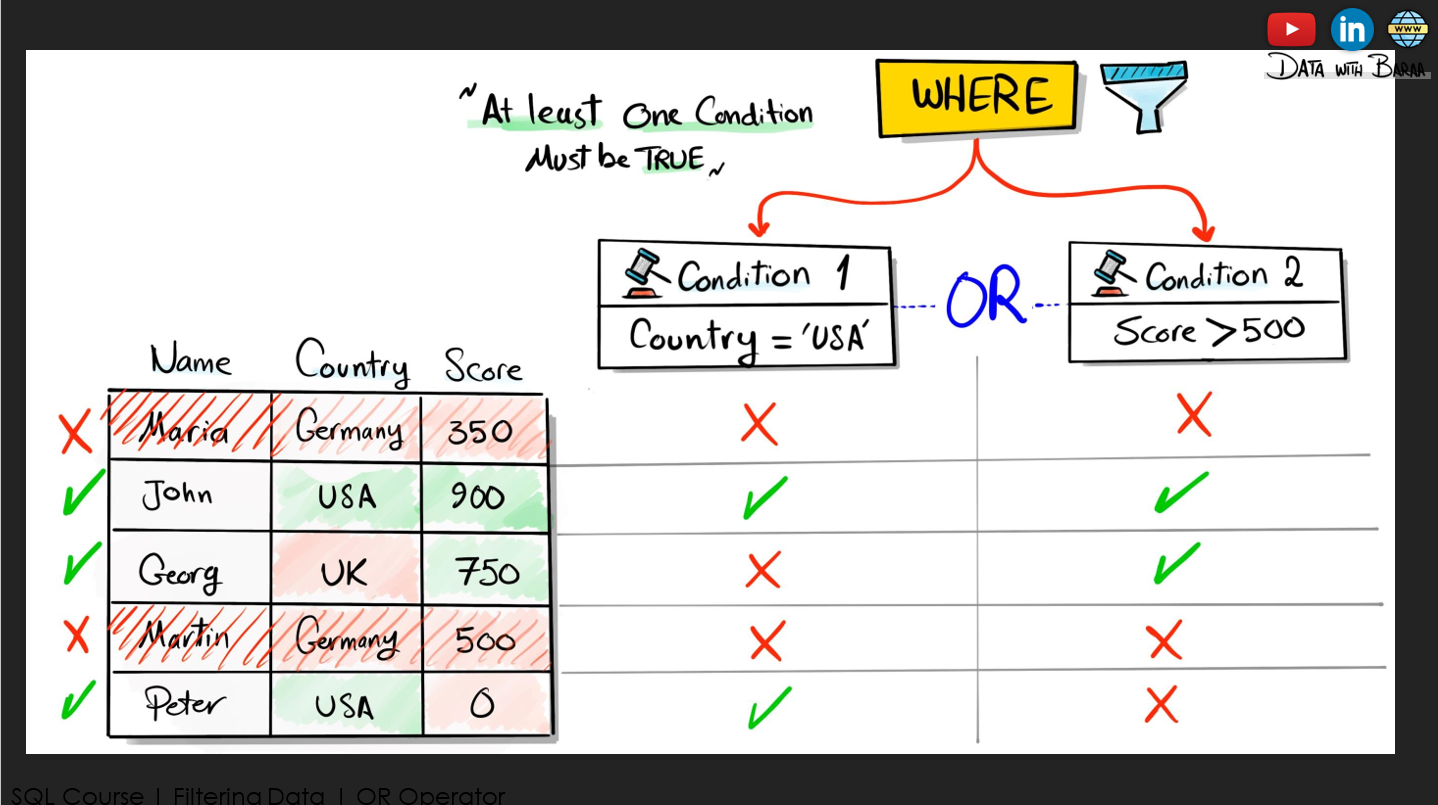 in
www
DATA WITH BARAA
WHERE
"At least One Condition
Must be TRUE"
Condition 1
OR
Condition 2
Country = 'USA'
Score > 500
Name Country Score
Maria Germany 350
John USA 900
Georg UK 750
Martin Germany 500
Peter USA 0
SQL Course | Filtering Data | OR Operator